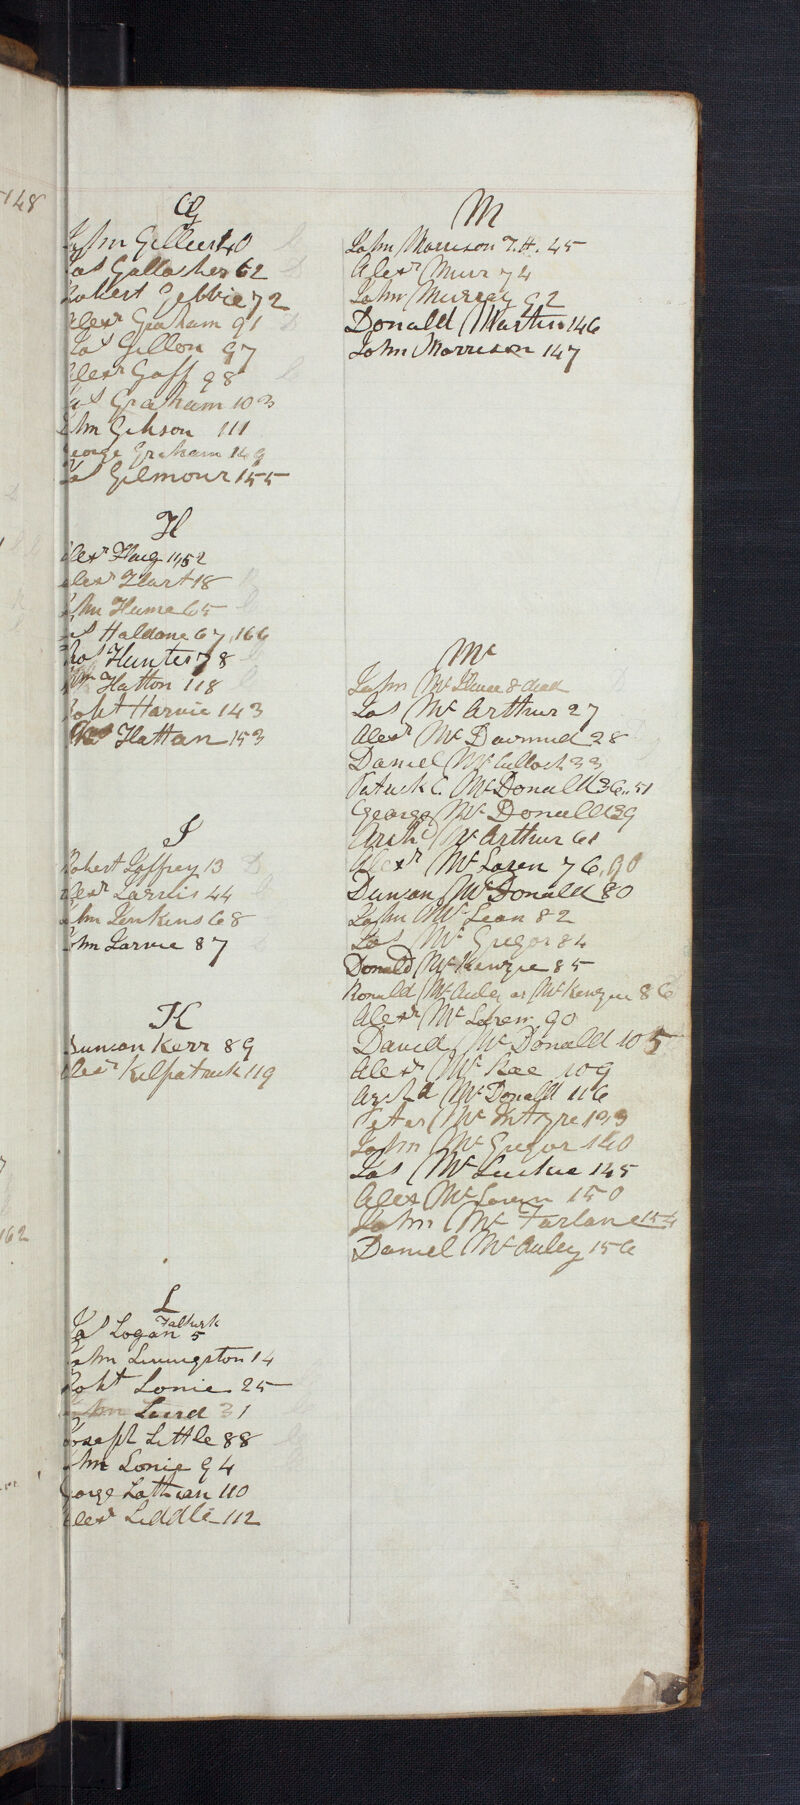 148
G
John Gillies 40
Jas Gallocher 62
Robert Gebbie 72
Alexr Graham 91
Jas Gillon 97
Alexr Goff 98
Jas Graham 103
John Gibson 111
George Graham 149
Jas Gilmour 155
H
Alexr Haig 11,52
Alexr Hart 18
John Hume 65
Jas Haldane 67,166
Thos Hunter 78
Hatton 118
Robt Harvie 143
Hattan 153
J
Robert Joffrey 13
Alexr Jarvis 44
John Jenkins 68
John Jarvie 87
K
Duncan Kerr 89
Alexr Kilpatrick 119
162
L
Jas Logan Falkirk 5
John Livingston 14
Robt Lonie 25
John Laird 31
Joseph Little 88
John Lonie 94
George Lothian 110
Alexr Liddle 112
M
John Morrison T.H. 45
Alexr Muir 74
John Murray 92
Donald Martin 146
John Morrison 147
Mc
John 8 dead
Jas McArthur 27
Alexr McDiarmid 28
Daniel McCulloch 33
Patrick C. McDonald 36..51
George McDonald 39
Archd McArthur 61
Alexr McLaren 76,90
Duncan McDonald 80
John McLean 82
Jas McGregor 84
Donald McKenzie 85
Ronald McAuley or McKenzie 86
Alexr McLaren 90
David McDonald 105
Alexr McRae 109
Archd McDonald 116
Peter McIntyre 133
John McGregor 140
Jas McLuckie 145
Alex McLaren 150
John McFarlane 154
Daniel McAuley 156